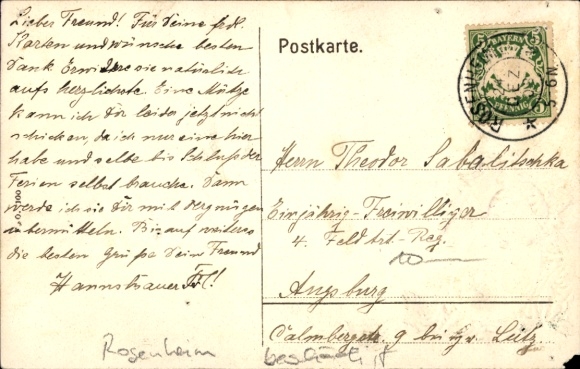 Lieber Freund! Für Deine frdl.
Karten und wünsche besten
Dank. Erwidere sie natürlich
aufs herzlichste. Eine Mütze
kann ich Dir leider jetzt nicht
schicken, da ich nur eine hier
habe und selbe bis Schluß der
Ferien selbst brauche. Dann
werde ich sie Dir mit vergnügen
übermitteln. Bis auf weiteres
die besten Grüße Dein Freund
Postkarte.
5 BAYERN 5
PFENNIG
ROSENHEIM
DEZ
5-6N
Herrn Theodor Sabalitschka
Einjährig-Freiwilliger
4. Feldart.-Reg.
Augsburg
9 bei
Rosenheim